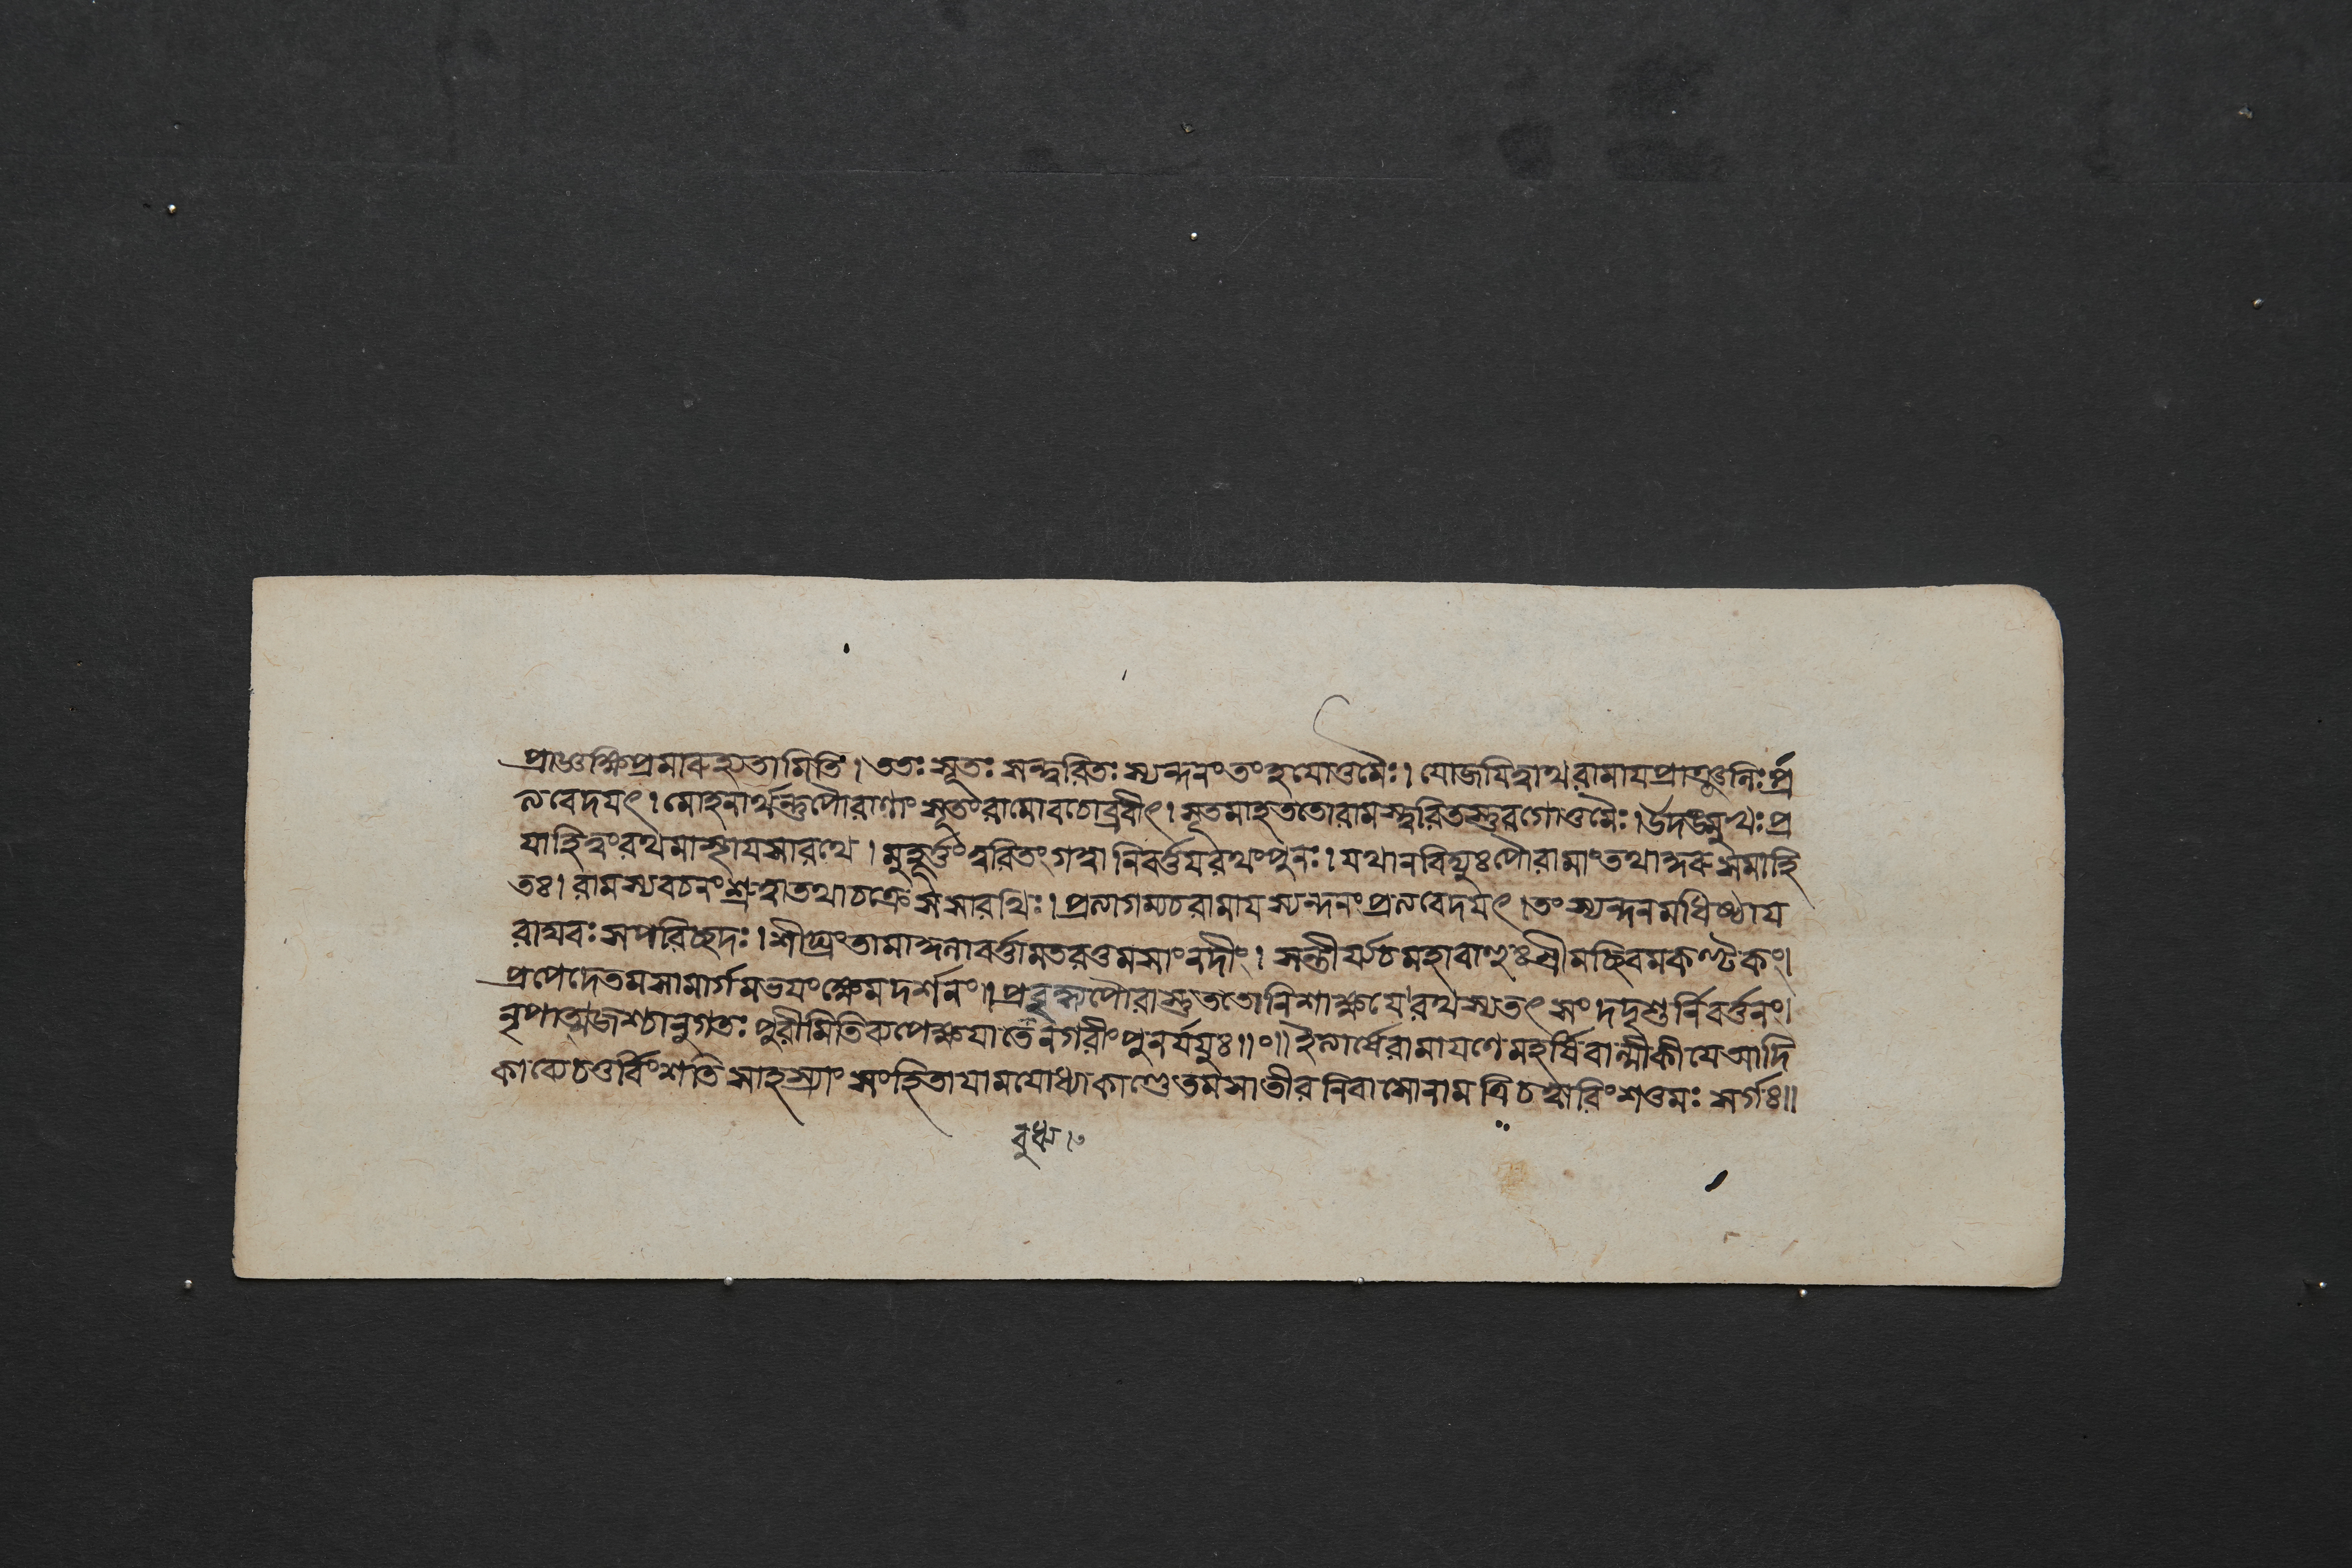 প্রাজ্ঞক্ষিপ্রমারুহ্যতামিতি। ততঃ সূতঃ সন্ত্বরিতঃ স্যন্দনংতংহযোত্তমৈঃ। যোজযিত্বাথরামাযপ্রাঞ্জলিঃপ্র
ত্যবেদযৎ। মোহনার্থন্তুপৌরাণাং সূতংরামোবচোব্রবীৎ। সূতমাহততোরামস্ত্বরিতস্তুরগোত্তমৈঃ। উদঙ্মুখঃপ্র
যাহিত্বংরথমাস্থাযসারথে। মুহূর্ত্তংত্বরিতংগত্বা নিবর্ত্তযরথংপুনঃ। যথানবিদ্যুঃপৌরামাংতথাকুরুসমাহি
তঃ। রামস্যবচনংশ্রুত্বাতথাচক্রেসসারথিঃ। প্রত্যাগম্যচরামাযস্যন্দনংপ্রত্যবেদযৎ। তংস্যন্দনমধিষ্ঠায
রাঘবঃ সপরিচ্ছদঃ। শীঘ্রংতামাকুলাবর্ত্তামতরত্তমসাংনদীং। সন্তীর্য্যচমহাবাহুঃশ্রীমচ্ছিবমকণ্টকং।
প্রপেদেতমসামার্গমভযংক্ষেমদর্শনং।। প্রবুদ্ধ্যপৌরাস্তুততোনিশাক্ষযেরথস্যতৎ সংদদৃশুর্নিবর্ত্তনং।
নৃপাত্মজশ্চানুগতঃ পুরীমিতিব্যপেক্ষযাতেনগরীংপুনর্যযুঃ।।০।। ইত্যার্ষেরামাযণেমহর্ষিবাল্মীকীযেআদি
কাব্যেচতুর্বিংশতিসাহস্র্যাং সংহিতাযামযোধ্যাকাণ্ডেতমসাতীরনিবাসোনাম ত্রিচত্বারিংশত্তমঃ সর্গঃ।।